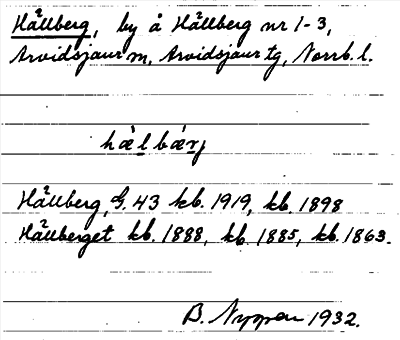 Hållberg, by å Hållberg nr 1-3,
Arvidsjaur m, Arvidsjaur tg, Norrb. l.
hål bærj
Hållberg, G. 43 kb. 1919, kb. 1898
Hållberget kb. 1888, kb. 1885, kb. 1863.
B. 1932.